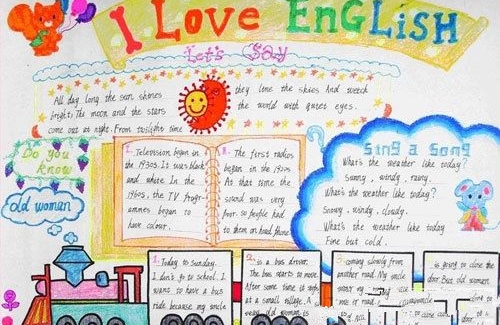 I Love EnGLiSH
Let's Say
All day long the sun shines
bright. The moon and the stars
come out at night. From twilight time
they love the skies And watch
the world with quiet eyes.
Do you
know
old woman
1. Television began in
the 1930s. It was black
and white. In the
1960s, the TV Progr-
ammes began to
have colour.
The first radios
began in the 1920s
At that time the
sound was very
poor. so people had
to them on head phone
Sing a Song
What's the weather like today?
Sunny, windy, rainy.
What's the weather like today?
Snowy, windy, cloudy.
What's the weather like today
Fine but cold.
1. Today is Sunday.
I don't go to school. I
want to have a bus
ride because my uncle
2. is a bus driver.
The bus starts to move
After some time it stops
at a small village. A
old woman is
coming slowly from
another road. My uncle
me
road.
is going to close the
door. But old woman